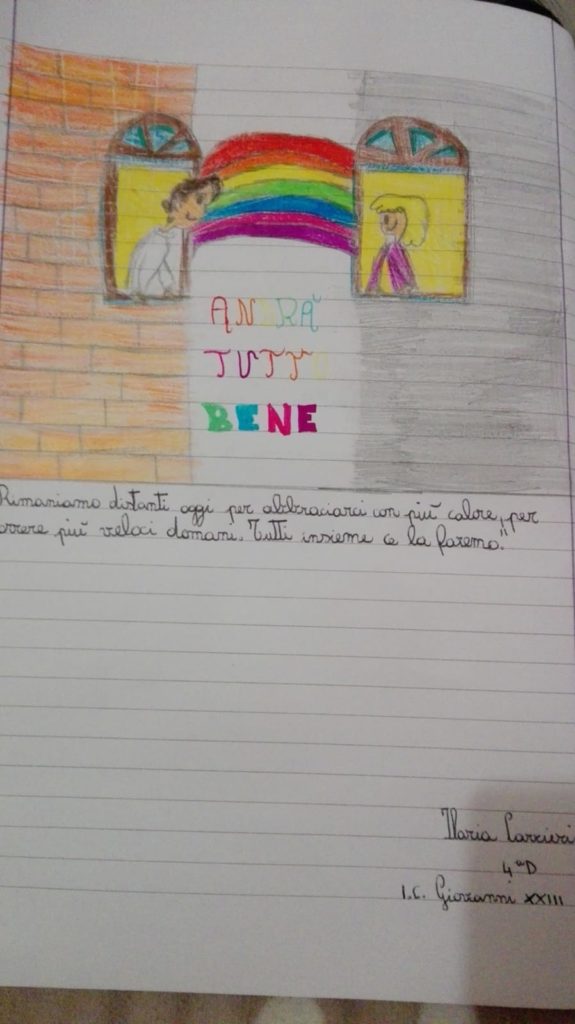 ANDRÀ
TUTTO
BENE
Rimaniamo distanti oggi per abbracciarci con più calore, per
orrere più veloci domani. Tutti insieme ce la faremo."
Ilaria
4ªD
I.C. Giovanni XXIII